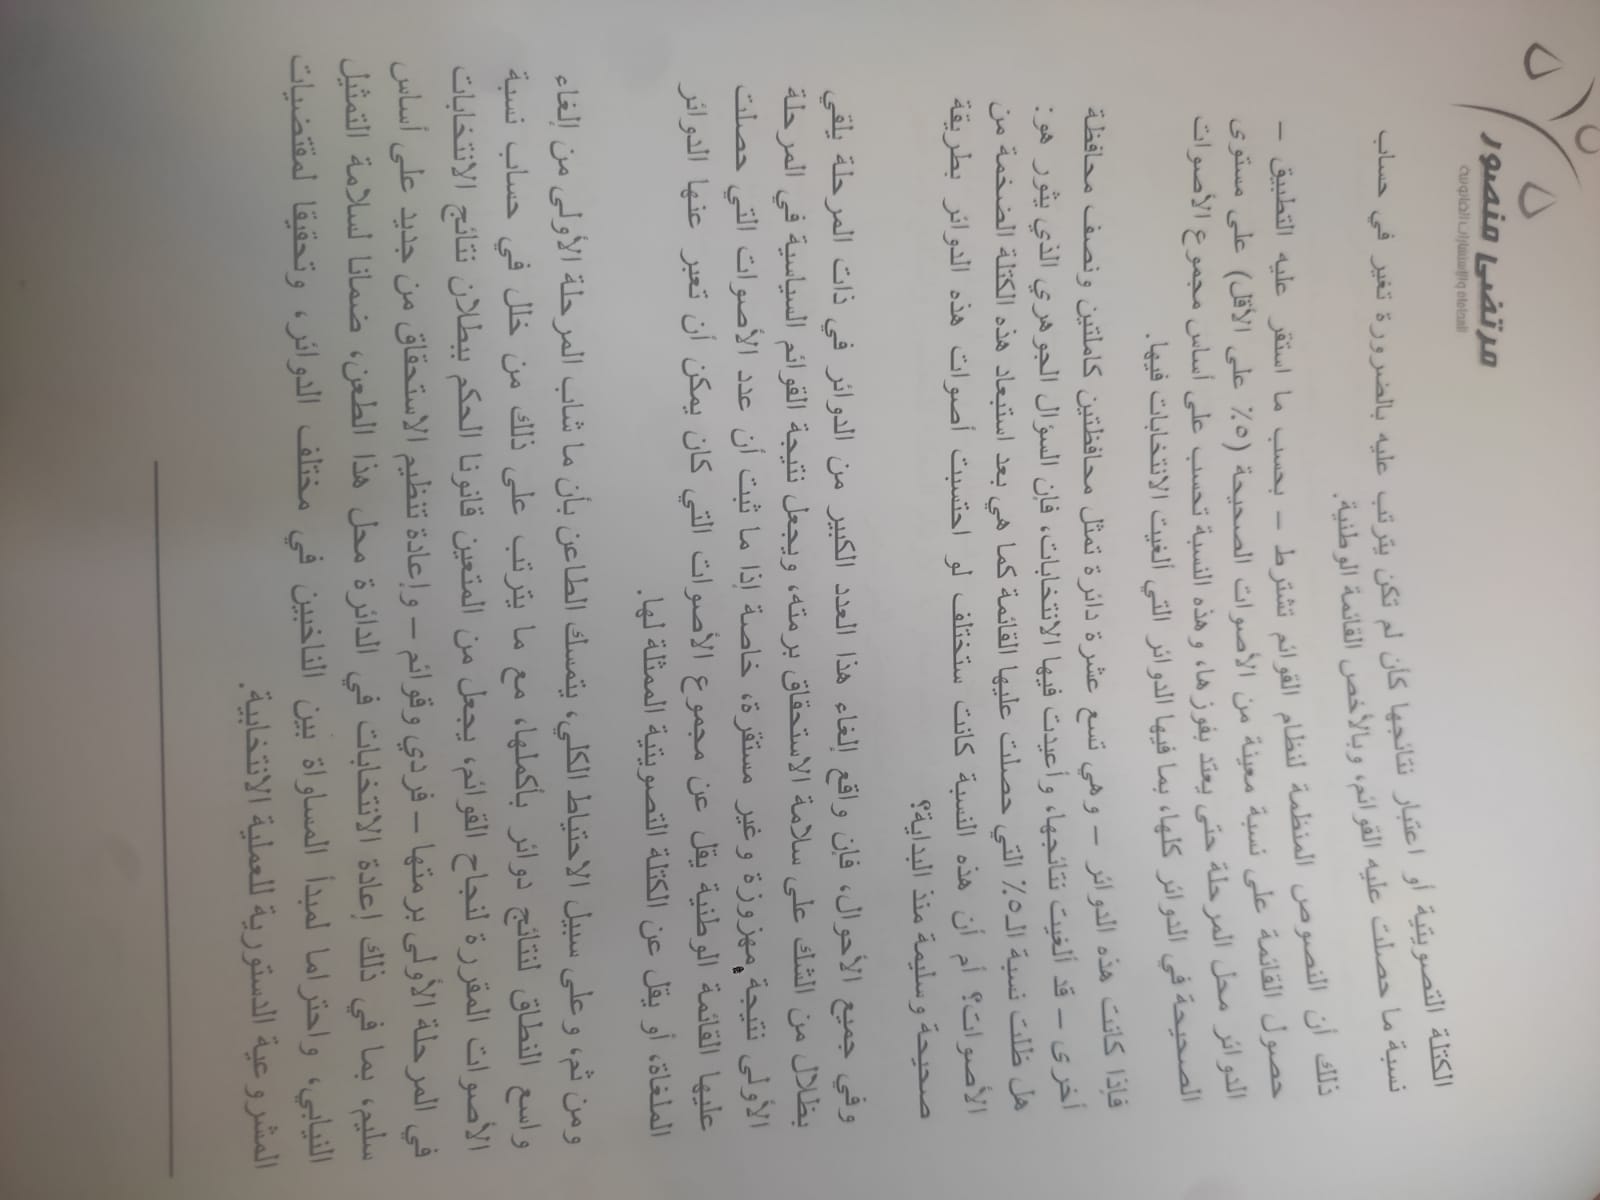 مرتضى منصور
للمحاماة والاستشارات القانونية
الكتلة التصويتية أو اعتبار نتائجها كأن لم تكن يترتب عليه بالضرورة تغير في حساب
نسبة ما حصلت عليه القوائم، وبالأخص القائمة الوطنية.
ذلك أن النصوص المنظمة لنظام القوائم تشترط – بحسب ما استقر عليه التطبيق –
حصول القائمة على نسبة معينة من الأصوات الصحيحة (٥٪ على الأقل) على مستوى
الدوائر محل المرحلة حتى يعتد بفوزها، وهذه النسبة تحسب على أساس مجموع الأصوات
الصحيحة في الدوائر كلها، بما فيها الدوائر التي ألغيت الانتخابات فيها.
فإذا كانت هذه الدوائر – وهي تسع عشرة دائرة تمثل محافظتين كاملتين ونصف محافظة
أخرى – قد ألغيت نتائجها، وأعيدت فيها الانتخابات، فإن السؤال الجوهري الذي يثور هو:
هل ظلت نسبة الـ٥٪ التي حصلت عليها القائمة كما هي بعد استبعاد هذه الكتلة الضخمة من
الأصوات؟ أم أن هذه النسبة كانت ستختلف لو احتسبت أصوات هذه الدوائر بطريقة
صحيحة وسليمة منذ البداية؟
وفي جميع الأحوال، فإن واقع إلغاء هذا العدد الكبير من الدوائر في ذات المرحلة يلقي
بظلال من الشك على سلامة الاستحقاق برمته، ويجعل نتيجة القوائم السياسية في المرحلة
الأولى نتيجة مهزوزة وغير مستقرة، خاصة إذا ما ثبت أن عدد الأصوات التي حصلت
عليها القائمة الوطنية يقل عن مجموع الأصوات التي كان يمكن أن تعبر عنها الدوائر
الملغاة، أو يقل عن الكتلة التصويتية الممثلة لها.
ومن ثم، وعلى سبيل الاحتياط الكلي، يتمسك الطاعن بأن ما شاب المرحلة الأولى من إلغاء
واسع النطاق لنتائج دوائر بأكملها، مع ما يترتب على ذلك من خلل في حساب نسبة
الأصوات المقررة لنجاح القوائم، يجعل من المتعين قانونا الحكم ببطلان نتائج الانتخابات
في المرحلة الأولى برمتها – فردي وقوائم – وإعادة تنظيم الاستحقاق من جديد على أساس
سليم، بما في ذلك إعادة الانتخابات في الدائرة محل هذا الطعن، ضمانا لسلامة التمثيل
النيابي، واحتراما لمبدأ المساواة بين الناخبين في مختلف الدوائر، وتحقيقا لمقتضيات
المشروعية الدستورية للعملية الانتخابية.